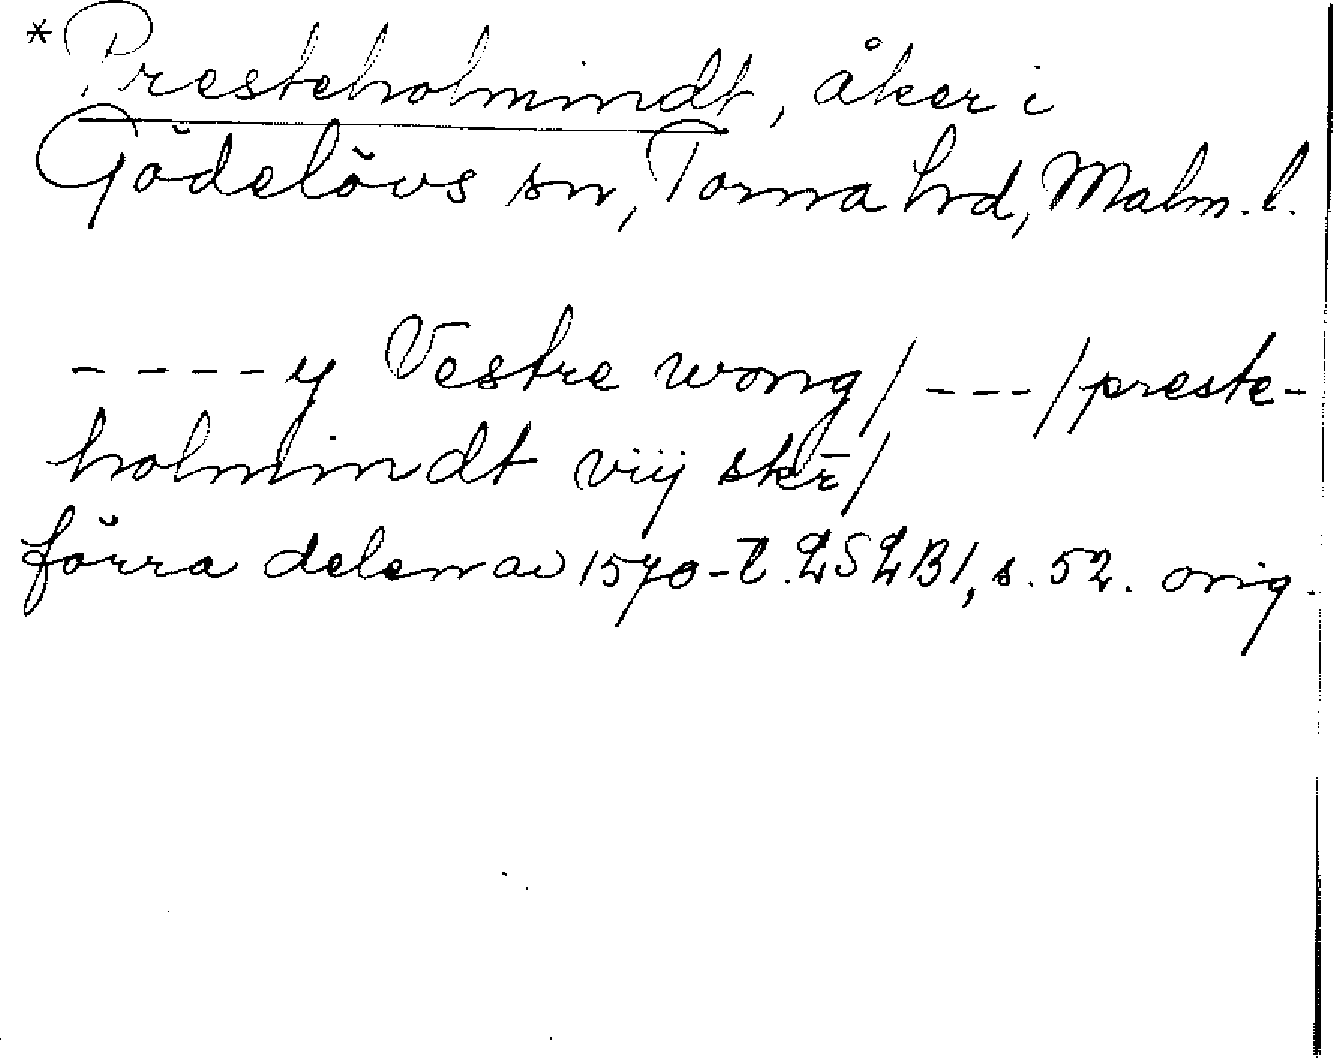 *Presteholmindt, åker i
Gödelövs sn, Torna hrd, Malm. l.
- - - - y Vestre wong/ - - - /preste-
holmindt viij skr̄/
förra delen av 1570-t. LSLB1, s. 52. orig.